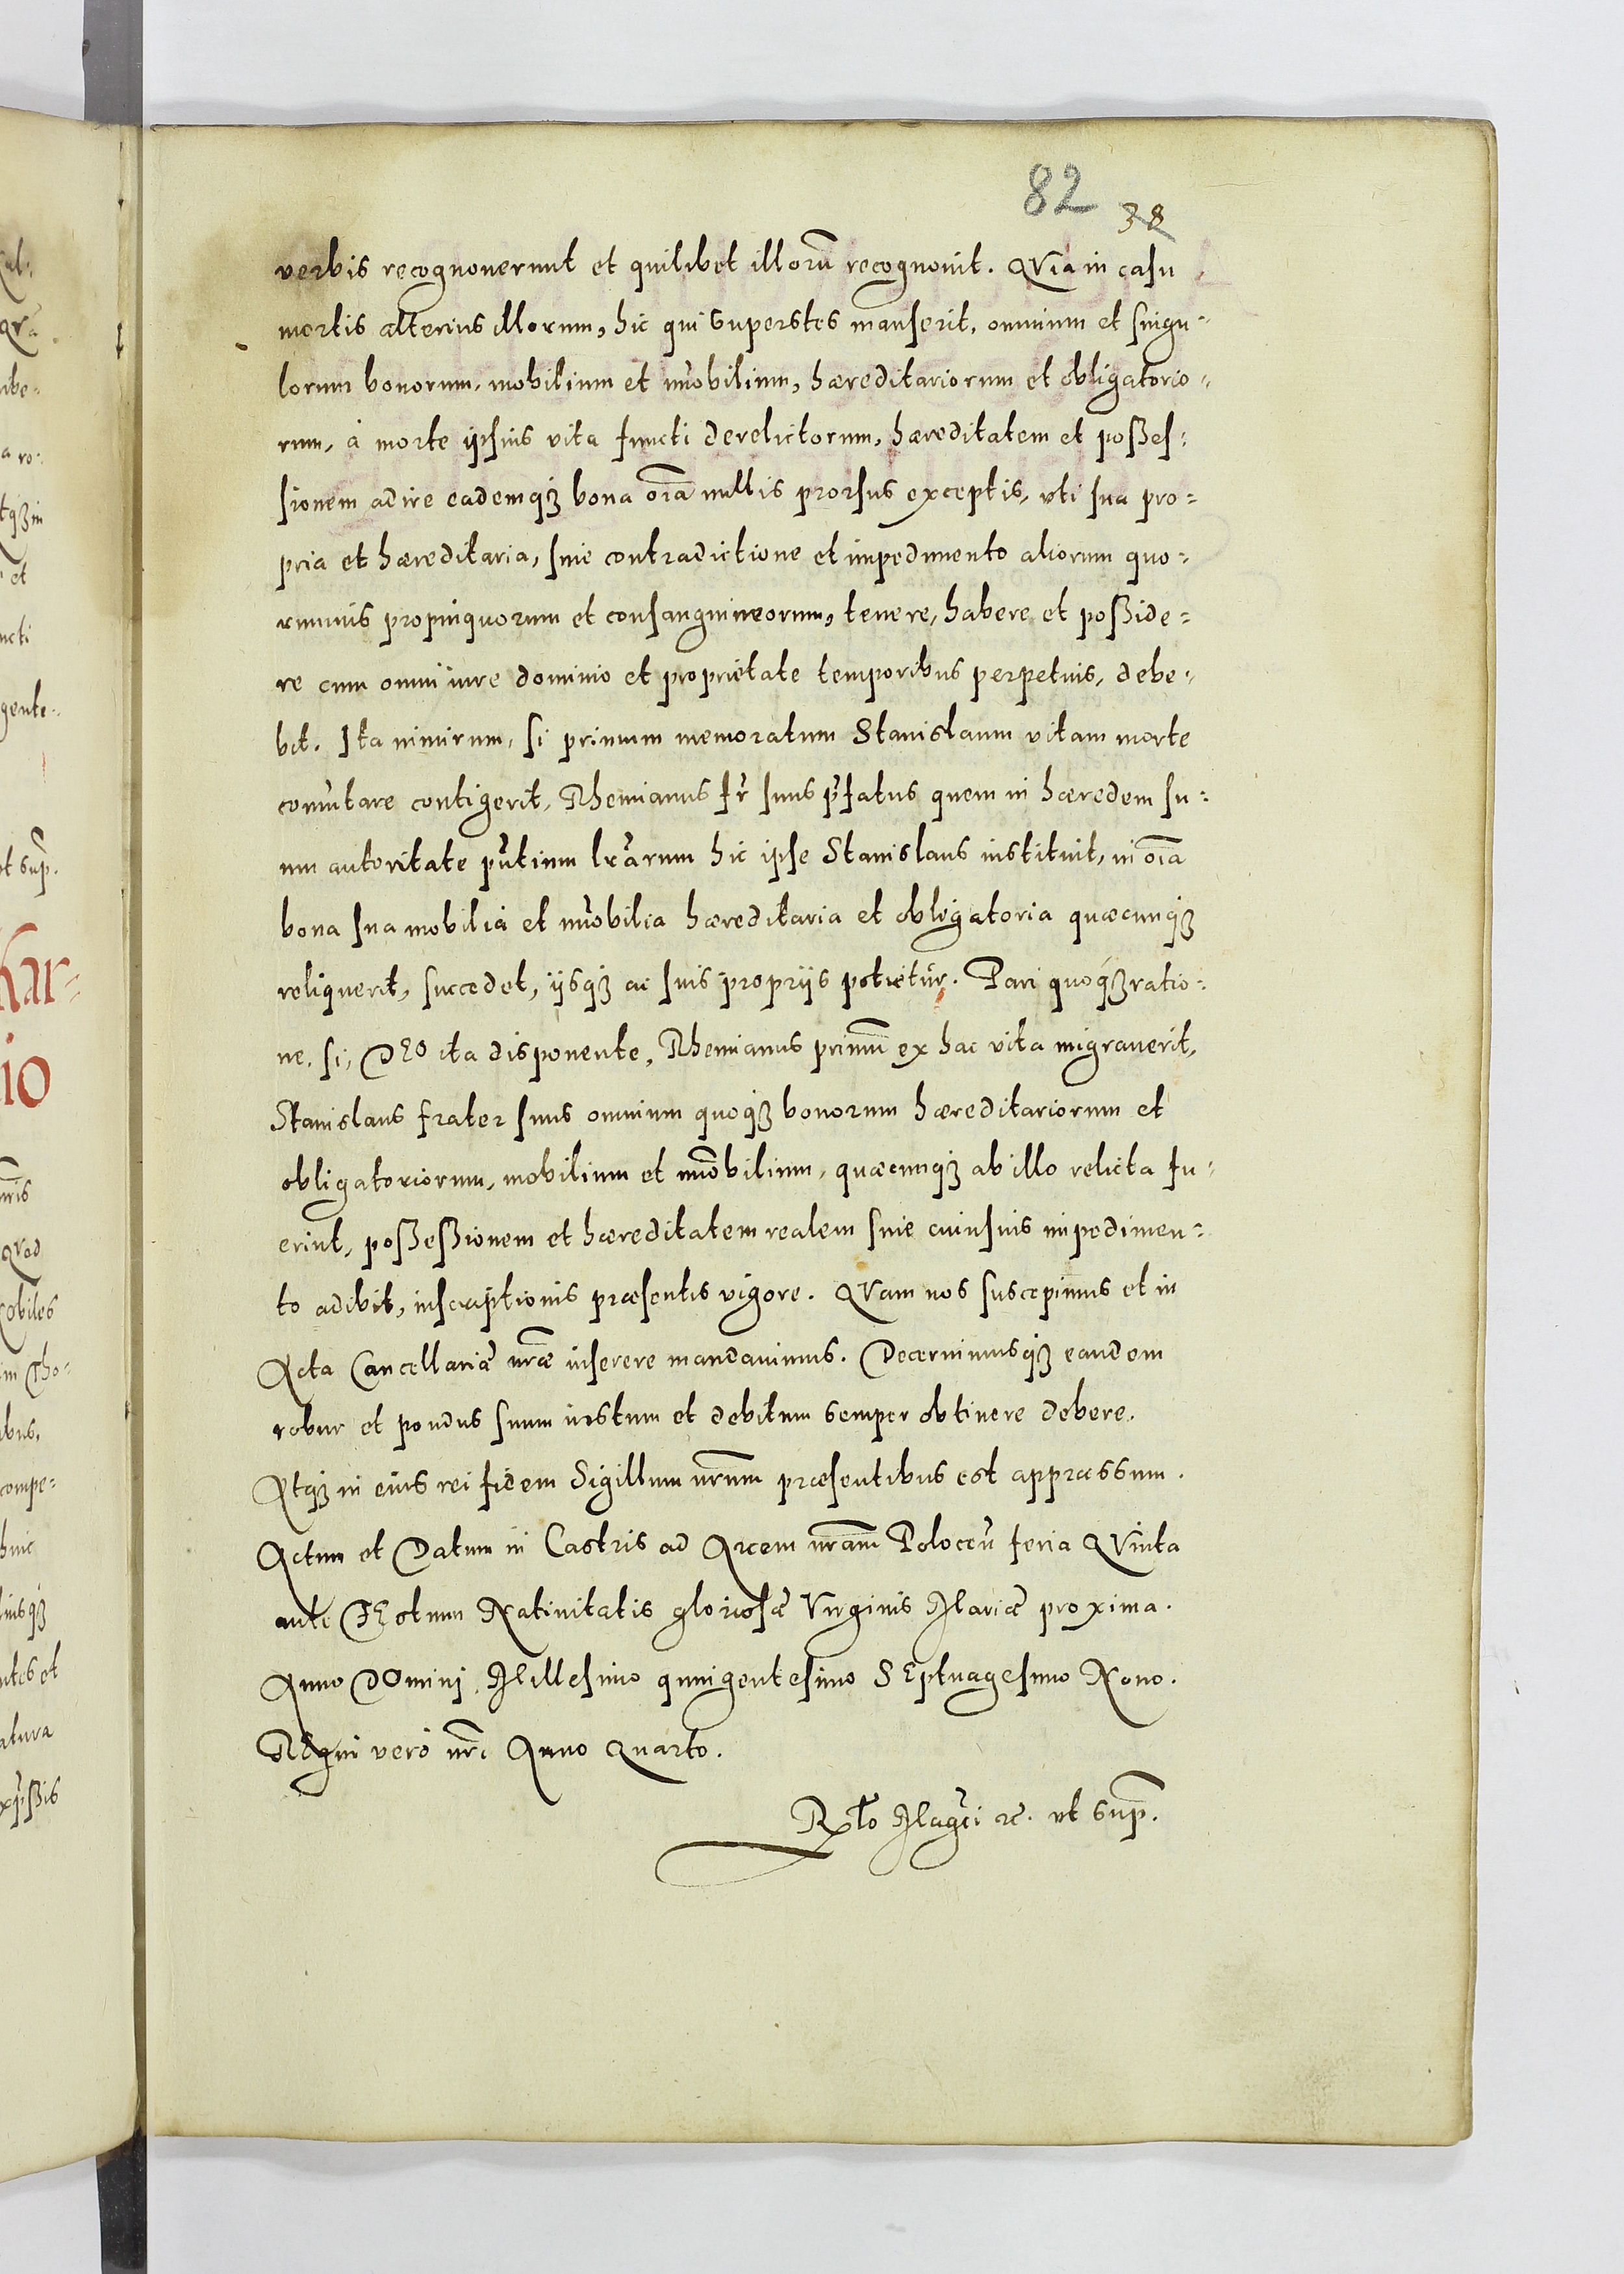 82 38
verbis recognouerunt et quilibet illorũ recognouit. QVia in casu
mortis alterius illorum, hic qui superstes manserit, omnium et singu=
lorum bonorum, mobilium et im̃obilium, hæreditariorum et obligatorio=
rum, à morte ipsius vita functi derelictorum, hæreditatem et posses=
sionem adire eademqꝫ bona oĩa nullis prorsus exceptis, uti sua pro=
pria et hæreditaria, sine contradictione et impedimento aliorum quo=
rumuis propinquorum et consanguineorum, tenere, habere et posside=
re cum omni iure dominio et proprietate temporibus perpetuis, debe=
bit. Ita nimirum, si primum memoratum Stanislaum vitam morte
com̃utare contigerit, Rhemianus fr̃ suus p̃fatus quem in hæredem su=
um autoritate pñtium lr̃arum hic ipse Stanislaus instituit, in oĩa
bona sua mobilia et im̃obilia hæreditaria et obligatoria quæcunqꝫ
reliquerit, succedet, ijsqꝫ ac suis proprijs potietur. Pari quoqꝫ ratio=
ne, si, DEO ita disponente, Rhemianus primũ ex hac vita migrauerit,
Stanislaus frater suus omnium quoqꝫ bonorum hæreditariorum et
obligatoriorum, mobilium et im̃obilium, quæcunqꝫ ab illo relicta fu=
erint, possessionem et hæreditatem realem sine cuiusuis impedimen=
to adibit, inscriptionis præsentis vigore. QVam nos suscepimus et in
Acta Cancellariæ nr̃æ inserere mandauimus. Decernimusqꝫ eandem
robur et pondus suum iustum et debitum semper obtinere debere.
Atqꝫ in eius rei fidem Sigillum nr̃um præsentibus est appræssum.
Actum et Datum in Castris ad Arcem nr̃am Polocen̄ feria QVinta
ante FEstum Natiuitatis gloriosæ Virginis Mariæ proxima.
Anno DOmini Millesimo quingentesimo SEptuagesimo Nono.
REgni verò nr̃i Anno Quarto.
Rl̃to Magc̃i ꝛc. vt sup̃.